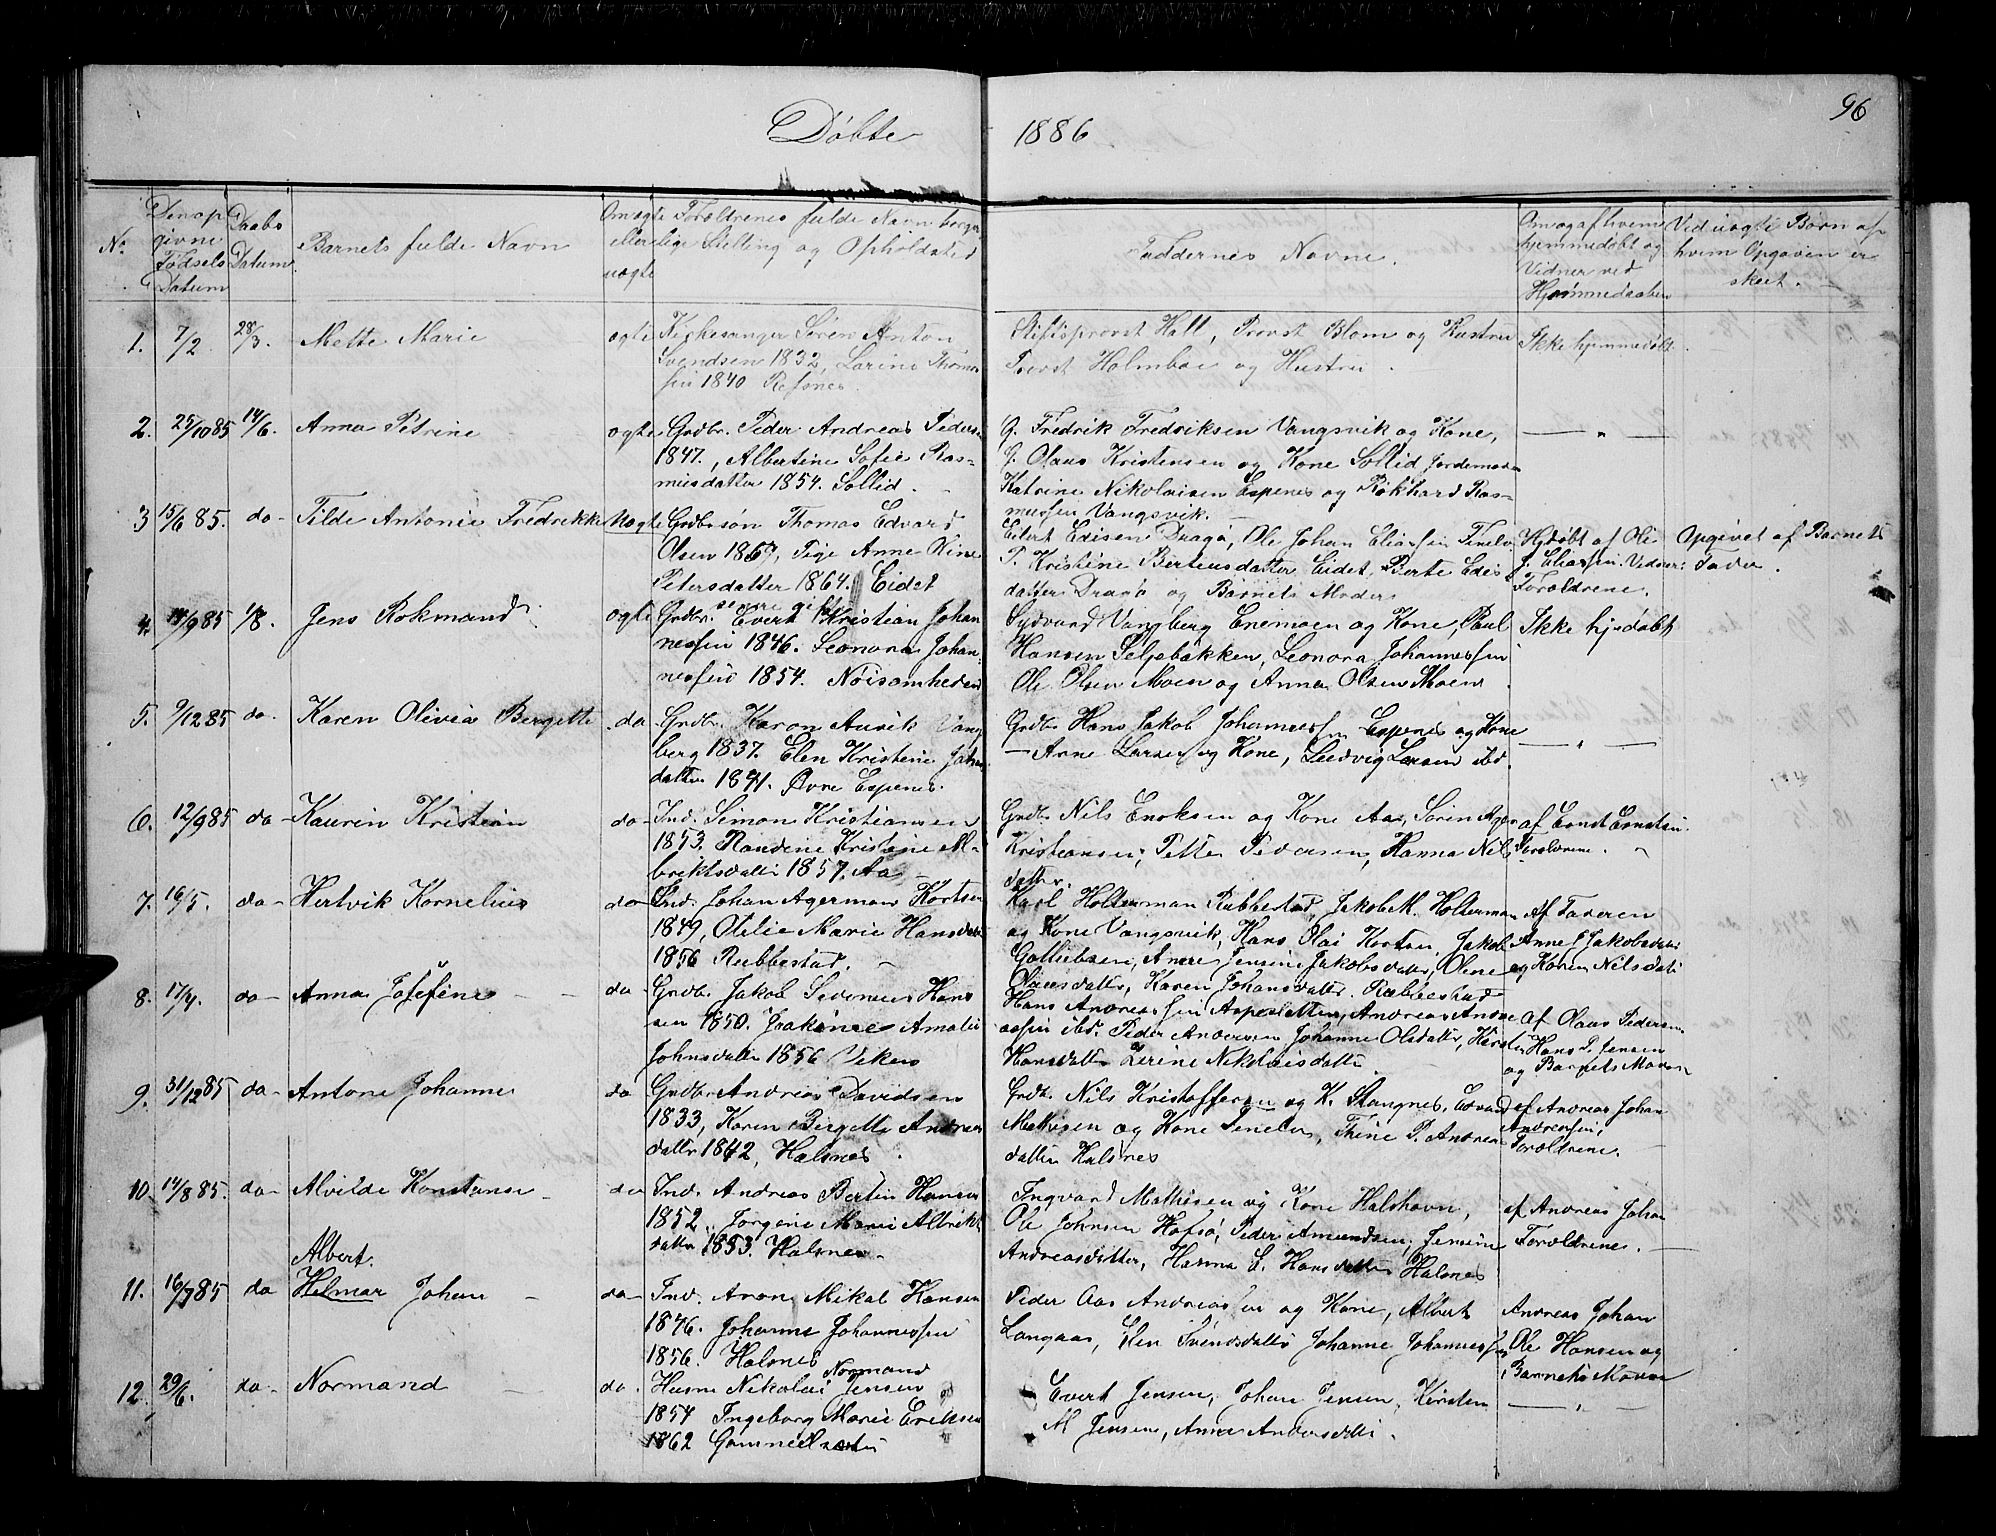 96
Døbte 1886
No.
Den opgivne Fødsels Datum
Daabs Datum
Barnets fulde Navn
Om ægte eller uægte
Forældrenes fulde Navn borgerlige Stilling og Opholdsted
Faddernes Navne.
Om og af hvem hjemmedøbt og Vidner ved Hjemmedaaben
Ved uægte Børn af hvem Opgaven er skeet.
1. 7/2 28/3. Mette Marie ægte Kirkesanger Søren Anton
Svendsen 1832, Larine Thomas
sen 1840 Refsnes.
Stiftsprovst Hall, Provst Blom og Hustru
Provst Holmboe og Hustru.
Ikke hjemmedøbt.
2. 25/10 85 14/6. Anna Petrine ægte Grdbr. Peder Andreas Peders
1847., Albertine Sofie Ras-
musdatter 1854. Sollid.
G. Fredrik Fredriksen Vangsvik og Kone,
G. Olaus Kristensen og Kone Sollid Jordemoder
Katrine Nikolaisen Espenes og Røkhard Ras-
mussen Vangsvik.
— " —
3 15/6 85. do- Tilde Antonie Fredrikke Uægte Grdbrsøn Thomas Edvard
Olsen 1867, Pige Anne Kine
Petersdatter 1864. Eidet
senere gift
Eilert Edisen Dragø, Ole Johan Eliassen Finelv
P. Kristine Berteusdatter Eidet, Berte Edis
datter Dragø og Barnets Moder
Hjdøbt af Ole
J. Eliassen. Vidner:
Forældrene.
Opgivet af Barnets
Fader.
4. 14/9 85 1/8. Jens Rokmand ægte Grdbr. Evert Kristian Johan
nessen 1846. Leonora Johan-
nessen 1854. Nøisomheden
Sydvard Vangberg Enemoen og Kone, Paul
Hansen Seljebakken, Leonora Johannessen
Ole Olsen Moen og Anna Olsen Moen
Ikke hjedøbt
5. 9/12 85 do. Karen Olivia Bergette do- Grdbr. Karon Ausik Vang
berg 1837. Elen Kristine Johans
datter 1841. Øvre Espenes.
Grdbr Hans Jakob Johannessen Espenes og Kone
— Arne Larsen og Kone, Ludvig Larsen ibd.
— " —
6. 12/9 85 do- Kaurin Kristian do- Ind. Simon Kristiansen
1853. Randine Kristine Al-
briktsdatter 1857. Aa
Grdbr Nils Enoksen og Kone Aa, Søren Ager
Kristiansen, Petter Pedersen, Hanna Nils
datter.
af Ernst Ernstsen.
Forældrene.
7. 16/5. do- Hertvik Kornelius do- Ind. Johan Agerman Kortsen
1849, Otilie Marie Hansdatter
1856 Rubbestad.
Karl Holterman Rubbestad, Jakob M. Holterman
og Kone Vangsvik, Hans Olai Kortsen, Jakob
Gotliebsen, Anne Jensine Jakobsdatter, Oline
Olausdatter, Karen Johansdatter. Rubbestad
Af Faderen
Anne J Jakobsdatter
og Karen Nilsdatter
8. 17/4. do- Anna Josefine do Grdbr. Jakob Sedenius Hans
sen 1850. Joakime Amalie
Johnsdatter 1856 Viken
Hans Andreassen Aspesletten, Andreas Andre
assen ibd. Peder Andersen Johanne Olsdatter, Kirsten
Hansdatter Zerine Nikolaisdatter
af Olaus Pedersen
Hans P. Jensen
og Barnets Moder
9. 31/12 85 do- Antone Johanne do Grdbr Andreas Davidsen
1833, Karen Bergette Andreas
datter 1842, Halsnes.
Grdb. Nils Kristoffersen og K. Stangnes, Edvard
Mathisen og Kone Finelv, Trine P. Andreas
datter Halsnes
af Andreas Johan
Andreassen,
Forældrene.
10 14/8 85. do- Alvilde Konstanse do Ind. Andreas Bertin Hansen
1852. Jørgine Marie Albrikt
datter 1853. Halsnes-
Ingvard Mathisen og Kone Halshavn,
Ole Johnsen Hofsø, Peder Amundsen, Jensine
Andreasdatter, Hanna E. Hansdatter Halsnes
af Andreas Johan
Forældrene.
Albert.
11. 16/7 85 do Helmar Johan do- Ind. Aron Mikal Hansen
1846. Johanne Johannessen
1856. Halsnes
Peder Aas Andreassen og Kone, Albert
Langaas, Elen Svendsdatter Johanne Johannessen
Andreas Johan
Ole Hansen og
Barnets Moder
12. 29/6. do- Normand do. Husm Nikolai Normand Jensen
1854 Ingeborg Marie Eriksen
1862 Gammelsæter
Evert Jensen, Johan Jensen, Kirsten
M Jensen, Anna Andersdatter.
— " —